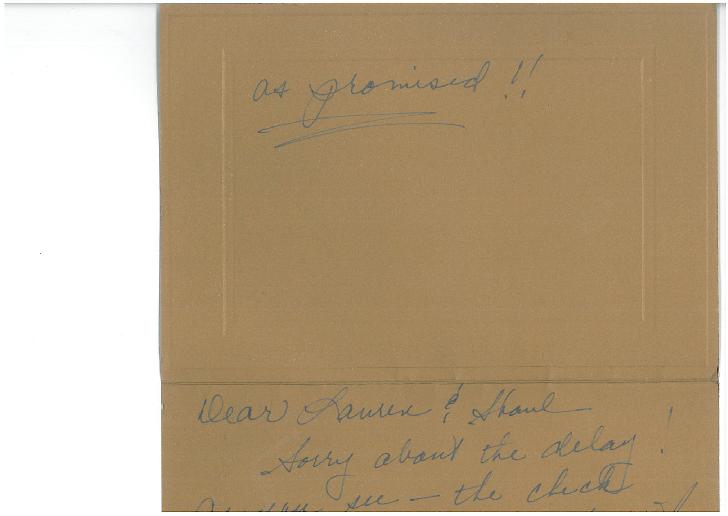 as promised !!
Dear Lauren & Shaul
Sorry about the delay !
As you see — the check